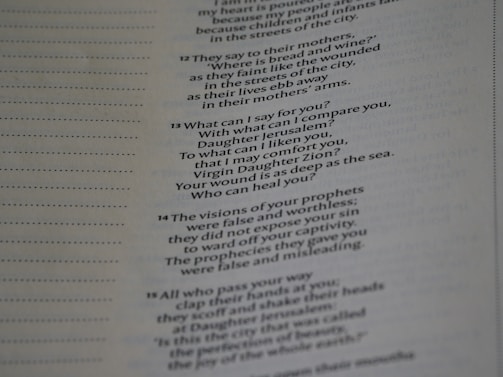 I am in
my heart is poured
because my people are
because children and infants
in the streets of the city.
12 They say to their mothers,
‘Where is bread and wine?’
as they faint like the wounded
in the streets of the city,
as their lives ebb away
in their mothers’ arms.
13 What can I say for you?
With what can I compare you,
Daughter Jerusalem?
To what can I liken you,
that I may comfort you,
Virgin Daughter Zion?
Your wound is as deep as the sea.
Who can heal you?
14 The visions of your prophets
were false and worthless;
they did not expose your sin
to ward off your captivity.
The prophecies they gave you
were false and misleading.
15 All who pass your way
clap their hands at you;
they scoff and shake their heads
at Daughter Jerusalem:
‘Is this the city that was called
the perfection of beauty,
the joy of the whole earth?’
open their mouths